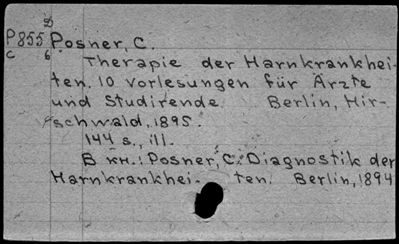 D
P855 Posner, C.
C 6 Therapie der Harnkrankhei-
ten. 10 Vorlesungen für Ärzte
und Studirende Berlin, Hir-
schwald, 1895.
144 s., ill.
В кн.: Posner, C. Diagnostik der
Harnkrankhei- ten. Berlin, 1894